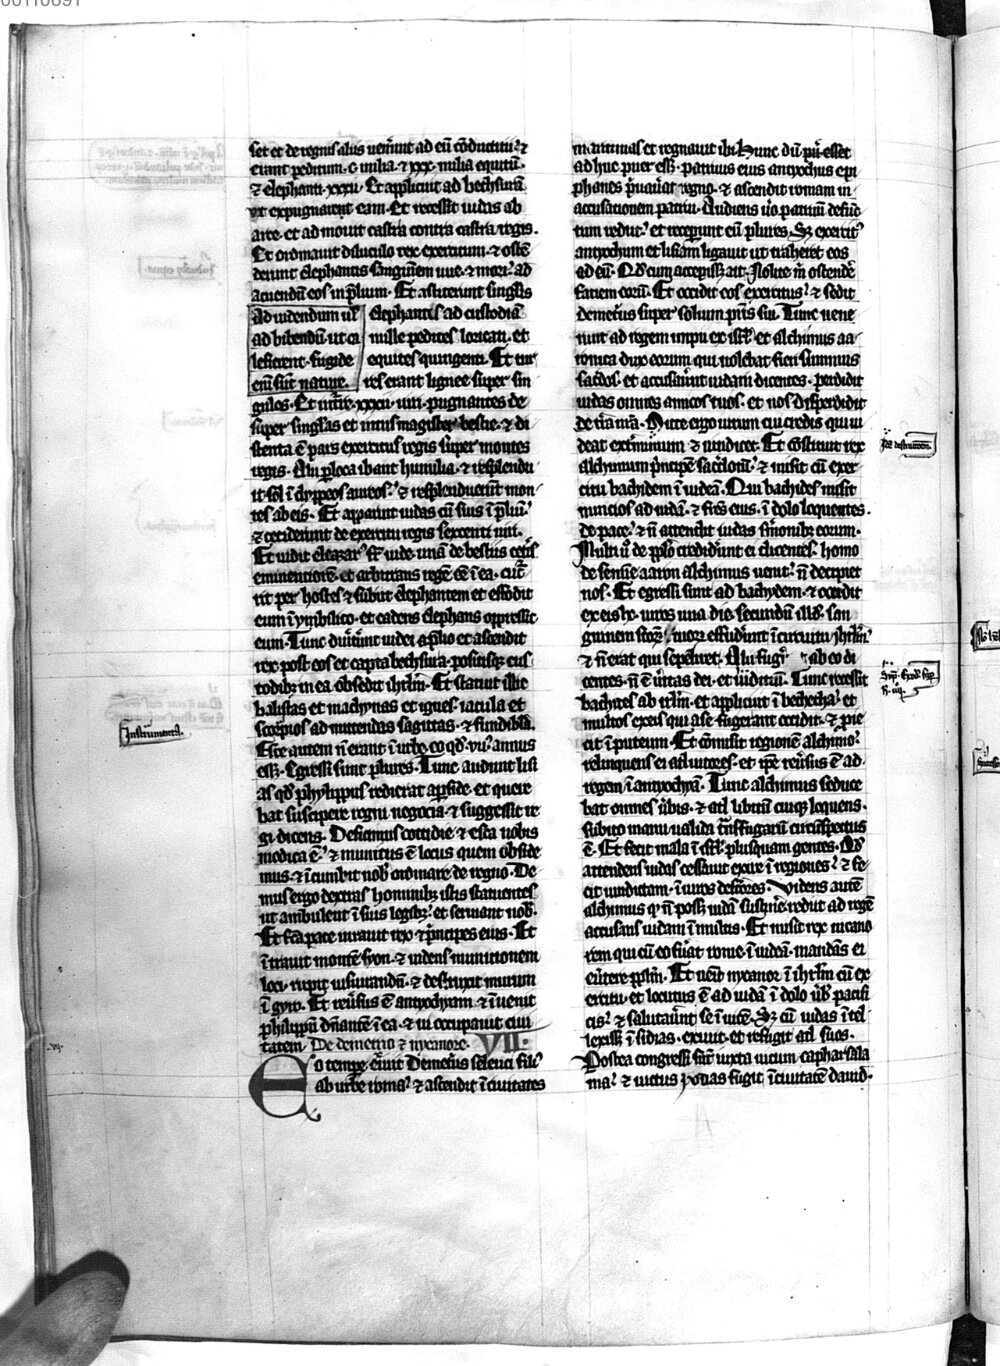 00110691
set et de regnis aliis venerunt ad eū cōducticii ⁊
erant peditum · c · milia · ⁊ xxx · milia equitū ·
⁊ elephanti · xxxii · Et applicuit ad bethsurā
ut expugnarent eam · Et recessit iudas ab
arce · et admovit castra contra castra regis ·
Et ordinauit diluculo rex exercitum · ⁊ ostē
derunt elephantis sanguinem uue · ⁊ mori ad
acuendū eos in p̄lium · Et astiterunt singlis
Ad uidendum ul'
ad bibendū ut ca
lefierent · frigide
enim sūt nature ·
elephantis ad custodiā
mille pedites loricati · et
equites quingenti · Et tur
res erant lignee super sin
gulos · Et uiri xxxii · uiri · pugnantes de
super singlas et intus magister bestie · ⁊ di
stenta ē pars exercitus regis super montes
regis · Alii per loca ibant humilia · ⁊ resplendu
it sol ī clypeos aureos · ⁊ resplenduerūt mon
tes ab eis · Et apparuit iudas cū suis ī p̄liū ·
⁊ ceciderunt de exercitu regis sexcenti uiri ·
Et uidit eleazar fr̄ iude unā de bestiis ceteris
eminentiorē · et arbitrans regē eē ī ea · cucur
rit per hostes ⁊ subiit elephantem et effodit
eum ī ymbilico · et cadens elephans oppressit
eum · Tunc diuertunt iudei a prelio et ascendit
rex post eos et capta bethsura · positisq; cus
todibus in ea obsedit ihrlm · Et statuit illic
balistas et machynas et ignes · iacula et
scorpios ad mittendas sagittas · ⁊ fundibla ·
Esce autem n̄ erant ī urbe eo qd' · vii · annus
esset · Egressi sunt plures · Tunc audiuit lisi
as qd' phylippus redierat a perside · et quere
bat suscipere regni negocia · ⁊ suggessit re
gi dicens · Deficimus cottidie ⁊ esca nobis
modica ē · ⁊ munitus ē locus quem obside
mus · ⁊ īcumbit nob' ordinare de regno · De
mus ergo dextras hominibus istis statuentes
ut ambulent ī suis legibz · et seruiant nob' ·
Et fc̄a pace iurauit rex ⁊ prīcipes eius · Et
ītrauit montē syon · ⁊ uidens munitionem
loci · rupit iusiurandū · ⁊ destruxit murum
ī gyro · Et reuersus ē antyochiam ⁊ īuenit
philippū dn̄antē ī ea · ⁊ ui occupauit ciui
tatem · De demetrio ⁊ nycanore · VII ·
Eo tempore exiuit Demetrius seleuci filius
ab urbe roma ⁊ ascendit ī ciuitates
maritimas et regnauit ibi · Hunc dū pu' esset
ad huc puer esset · patruus eius antyochus epi
phanes priuauerat regno · ⁊ ascendit romam in
accusationem patrui · Audiens u'o patruū defūc
tum rediit · et receperunt eū plures · Sz exercitus
antyochum et lisiam ligauit ut traheret eos
ad eū · Qd' cum accepisset ait · Nolite m̄ ostende
faciem eorū · Et occidit eos exercitus · ⁊ sedit
demetrius super solium patris sui · Tunc uene
runt ad regem impii ex isrl' et alchimus aa
ronita dux eorum qui uolebat fieri summus
sacerdos · et accusauerunt iudam dicentes · perdidit
iudas omnes amicos tuos · et nos disperdidit
de terra nr̄a · Mitte ergo uirum cui credis qui ui
deat exterminium ⁊ uindicet · Et cōstituit rex
alchimum prīcipē sacerdotū · ⁊ misit cū exer
citu bachidem ī iudeā · Qui bachides misit
nuncios ad iudā · ⁊ frēs eius · ī dolo loquentes ·
de pace · ⁊ n̄ attendit iudas sermonibz eorum ·
Multi u'o de pplo crediderunt ei dicentes · homo
de semine aaron alchimus uenit · n̄ decipiet
nos · Et egressi sunt ad bachydem · ⁊ occidit
ex eis lx · uiros una die · secundū illud · san
guinem scorz tuorz effuderunt ī circuitu ihrlm
⁊ n̄ erat qui sepeliret · Alii fugierunt ab eo di
centes · n̄ ē ueritas dei · et iudicium · Tunc recessit
bachides ab irlm · et applicuit ī bethecha · et
multos ex eis qui a se fugerant occidit · ⁊ proie
cit ī puteum · Et cōmisit regionē alchimo ·
relinquens ei adiutores · et ipse reuersus ē ad ·
regem ī antyochiā · Tunc alchimus seduce
bat omnes uerbis · ⁊ ad libitū cuiq; loquens ·
subito manu ualida transfugarū circūspectus
ē · Et fecit mala ī isrl' plusquam gentes · Qd'
attendens iudas cessauit exire ī regiones · ⁊ fe
cit uindictam · ī uiros desertores · Videns autē
alchimus qr n̄ posset iudā sustinere rediit ad regē
accusans iudam ī multis · Et misit rex nicano
rem qui cū eo fuerat rome · ī iudeā · mandās ei
euertere pplm · Et uenit nycanor ī ihrlm cū ex
ercitu · et locutus ē ad iudā ī dolo uerbis pacifi
cis · ⁊ salutauerunt se ī uicē · Sz cū iudas ītel
lexisset ī sidias · exiuit · et refugit ad suos ·
Postea congressi sunt iuxta uicum capharsala
ma · ⁊ uictus iudas fugit ī ciuitatē dauid ·
Instrumenta ·